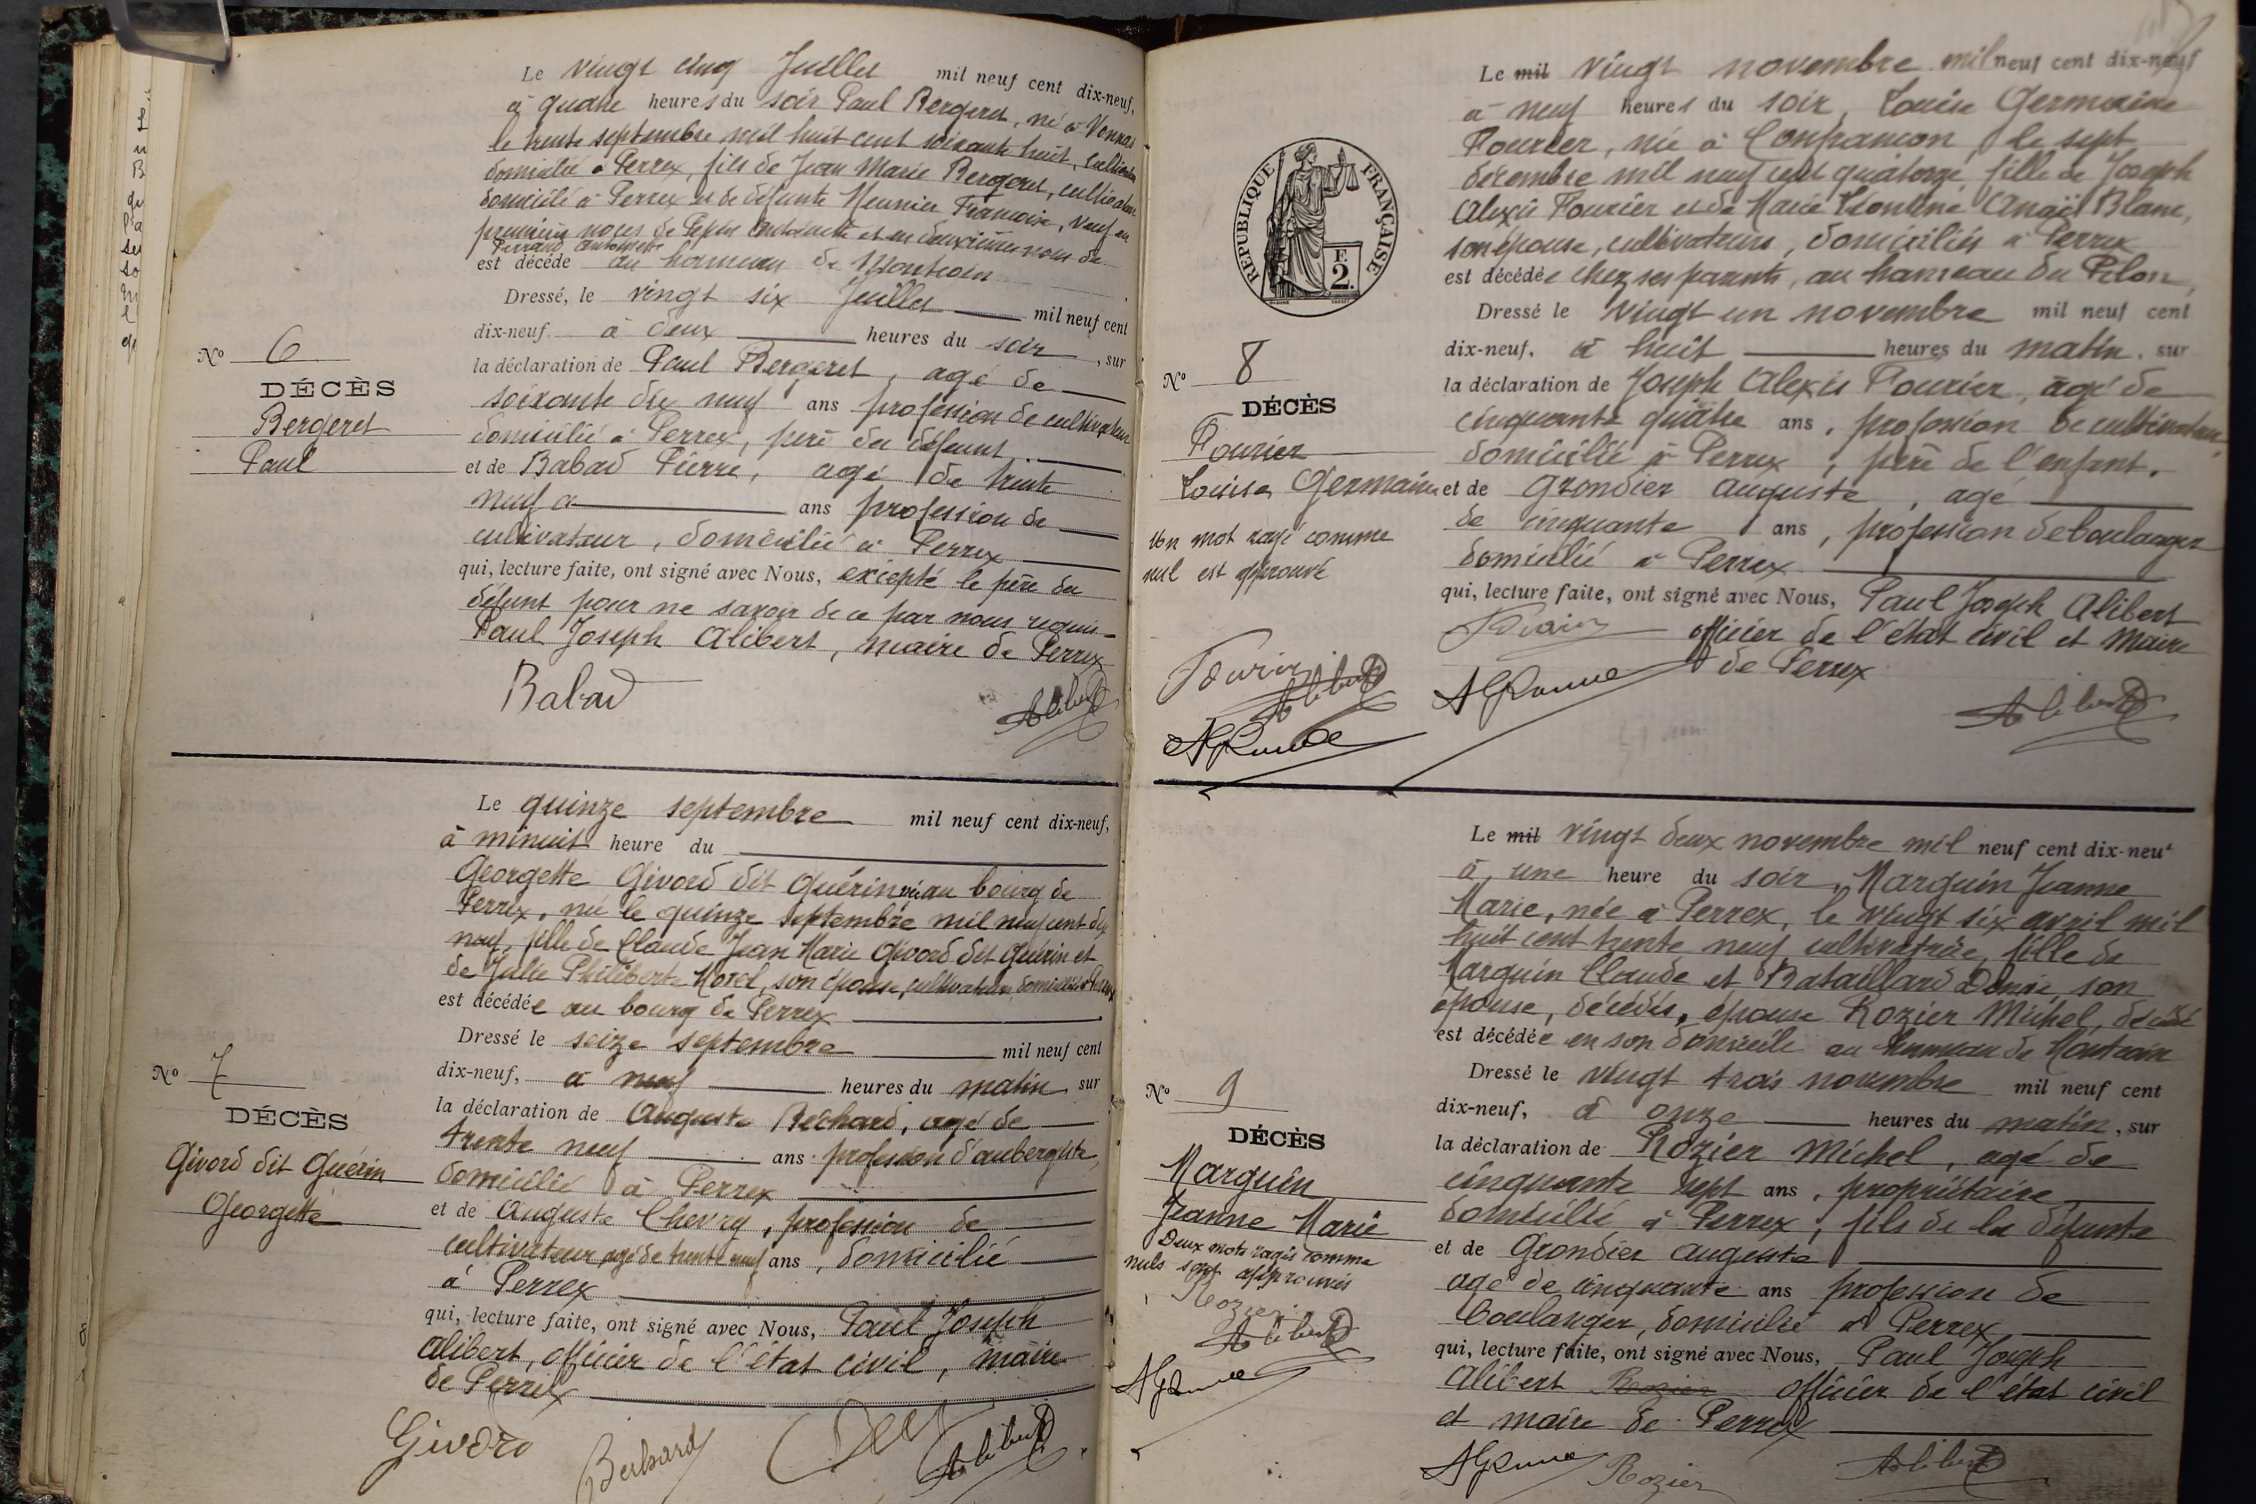 Le vingt cinq Juillet mil neuf cent dix-neuf,
à quatre heures du soir Paul Bergeret, né à Vonnas
le trente septembre mil huit cent soixante huit, cultivateur
domicilié à Perrex, fils de Jean Marie Bergeret, cultivateur
domicilié à Perrex et de défunte Meunier Françoise, veuf en
premières noces de Pépin et en deuxièmes noces de
Perrand Antoinette
est décédé au hameau de Montcoin
Dressé, le vingt six Juillet mil neuf cent
dix-neuf à deux heures du soir, sur
la déclaration de Paul Bergeret, agé de
soixante dix neuf ans profession de cultivateur
domicilié à Perrex, père du défunt.
et de Babad Pierre, agé de trente
neuf ans profession de
cultivateur, domicilié à Perrex
qui, lecture faite, ont signé avec Nous, excepté le père du
défunt pour ne savoir de ce par nous requis
Paul Joseph Alibert, maire de Perrex
Babad
Alibert
No 6
DÉCÈS
Bergeret
Paul
Le quinze septembre mil neuf cent dix-neuf,
à minuit heure du
Georgette Givord dit Guérin née au bourg de
Perrex, née le quinze septembre mil neuf cent dix
neuf, fille de Claude Jean Marie Givord dit Guérin et
de Julie Philiberte Morel, son épouse, cultivateurs, domiciliés à Perrex
est décédée au bourg de Perrex
Dressé le seize septembre mil neuf cent
dix-neuf, à neuf heures du matin, sur
la déclaration de Auguste Béchard, agé de
trente neuf ans profession d'aubergiste,
domicilié à Perrex
et de Auguste Chevry, profession de
cultivateur, agé de trente neuf ans, domicilié
à Perrex
qui, lecture faite, ont signé avec Nous, Paul Joseph
Alibert, officier de l'état civil, maire
de Perrex
Givord
Alibert
No 7
DÉCÈS
Givord dit Guérin
Georgette
RÉPUBLIQUE FRANÇAISE
F.
2.
Le mil vingt novembre mil neuf cent dix-neuf
à neuf heures du soir, Louise Germaine
Fourier, née à Confrançon, le sept
décembre mil neuf cent quatorze, fille de Joseph
Alexis Fourier et de Marie Léontine Anaïs Blanc,
son épouse, cultivateurs, domiciliés à Perrex
est décédée chez ses parents, au hameau du Pilon,
Dressé le vingt un novembre mil neuf cent
dix-neuf, à huit heures du matin, sur
la déclaration de Joseph Alexis Fourier, agé de
cinquante quatre ans, profession de cultivateur,
domicilié à Perrex, père de l'enfant.
et de Grondier Auguste, agé
de cinquante ans, profession de boulanger
domicilié à Perrex
qui, lecture faite, ont signé avec Nous, Paul Joseph Alibert
officier de l'état civil et maire
de Perrex
Alibert
No 8
DÉCÈS
Fourier
Louise Germaine
Un mot rayé comme
nul est approuvé
Fourier
Alibert
Le mil vingt deux novembre mil neuf cent dix-neuf
à une heure du soir, Marguin Jeanne
Marie, née à Perrex, le vingt six avril mil
huit cent trente neuf cultivatrice, fille de
Marguin Claude et Bataillard Denise, son
épouse, décédés, épouse Rozier Michel, décédé
est décédée en son domicile au hameau de Montcoin
Dressé le vingt trois novembre mil neuf cent
dix-neuf, à onze heures du matin, sur
la déclaration de Rozier Michel, agé de
cinquante sept ans, propriétaire
domicilié à Perrex, fils de la défunte
et de Grondier Auguste
agé de cinquante ans profession de
boulanger, domicilié à Perrex
qui, lecture faite, ont signé avec Nous, Paul Joseph
Alibert Rozier officier de l'état civil
et maire de Perrex
Rozier
Alibert
No 9
DÉCÈS
Marguin
Jeanne Marie
Deux mots rayés comme
nuls sont approuvés
Rozier
Alibert